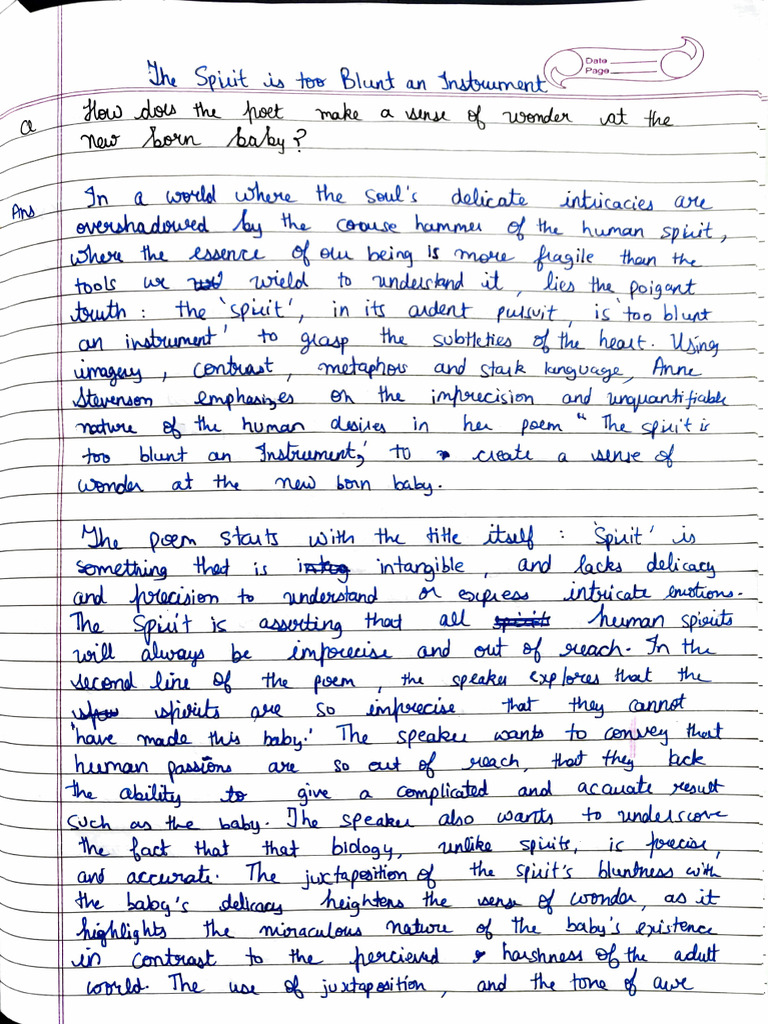 The Spirit is too Blunt an Instrument
Date
Page
Q How does the poet make a sense of wonder at the
new born baby?
Ans In a world where the soul's delicate intricacies are
overshadowed by the coarse hammer of the human spirit,
where the essence of our being is more fragile than the
tools we wield to understand it, lies the poigant
truth : the 'spirit', in its ardent pursuit, is 'too blunt
an instrument' to grasp the subtleties of the heart. Using
imagery, contrast, metaphors and stark language, Anne
Stevenson emphasizes on the imprecision and unquantifiable
nature of the human desires in her poem "The spirit is
too blunt an Instrument," to create a sense of
wonder at the new born baby.
The poem starts with the title itself : 'Spirit' is
something that is intangible, and lacks delicacy
and precision to understand or express intricate emotions.
The Spirit is asserting that all human spirits
will always be imprecise and out of reach. In the
second line of the poem, the speaker explores that the
spirits are so imprecise that they cannot
'have made this baby.' The speaker wants to convey that
human passions are so out of reach, that they lack
the ability to give a complicated and accurate result
such as the baby. The speaker also wants to underscore
the fact that that biology, unlike spirits, is precise,
and accurate. The juxtaposition of the spirit's bluntness with
the baby's delicacy heightens the sense of wonder, as it
highlights the miraculous nature of the baby's existence
in contrast to the percieved harshness of the adult
world. The use of juxtaposition, and the tone of awe